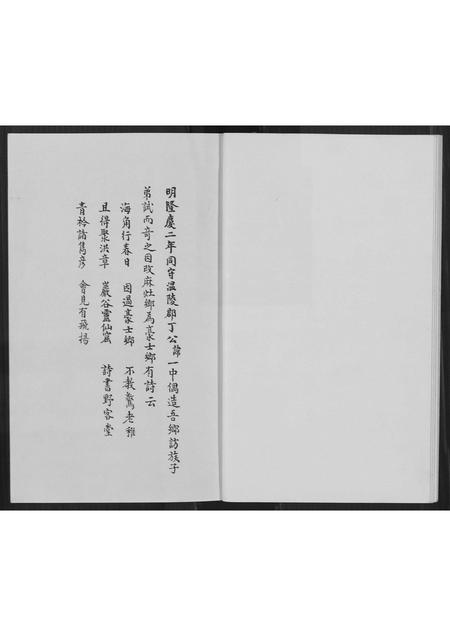 明隆慶二年同守溫陵郡丁公諱一中偶造吾鄉訪族子
弟試而奇之因改麻灶鄉為豪士鄉有詩云
海角行春日 因過豪士鄉 不教驚老稚
且得聚洪章 巖谷靈仙窩 詩書野客堂
青衿諸雋彥 會見有飛揚